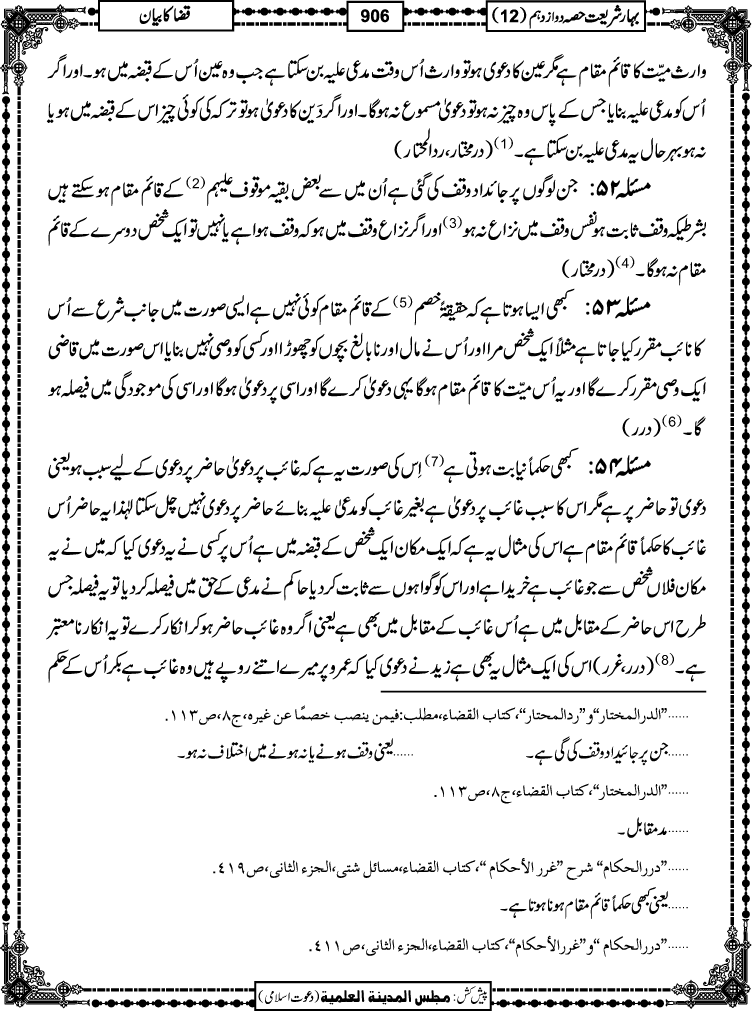 بہارِ شریعت حصہ دوازدہم (12)
906
قضا کا بیان
وارث میّت کا قائم مقام ہے مگر عین کا دعویٰ ہو تو وارث اُس وقت مدعیٰ علیہ بن سکتا ہے جب وہ عین اُس کے قبضہ میں ہو۔ اور اگر
اُس کو مدعیٰ علیہ بنایا جس کے پاس وہ چیز نہ ہو تو دعویٰ مسموع نہ ہوگا۔ اور اگر دَین کا دعویٰ ہو تو ترکہ کی کوئی چیز اس کے قبضہ میں ہو یا
نہ ہو بہر حال یہ مدعیٰ علیہ بن سکتا ہے۔(1) (درمختار، ردالمحتار)
مسئلہ ۵۲: جن لوگوں پر جائداد وقف کی گئی ہے اُن میں سے بعض بقیہ موقوف علیہم(2) کے قائم مقام ہو سکتے ہیں
بشرطیکہ وقف ثابت ہو نفس وقف میں نزاع نہ ہو(3) اور اگر نزاع وقف میں ہو کہ وقف ہوا ہے یا نہیں تو ایک شخص دوسرے کے قائم
مقام نہ ہوگا۔(4) (درمختار)
مسئلہ ۵۳: کبھی ایسا ہوتا ہے کہ حقیقۃً خصم(5) کے قائم مقام کوئی نہیں ہے ایسی صورت میں جانب شرع سے اُس
کا نائب مقرر کیا جاتا ہے مثلاً ایک شخص مرا اور اُس نے مال اور نا بالغ بچوں کو چھوڑا اور کسی کو وصی نہیں بنایا اس صورت میں قاضی
ایک وصی مقرر کرے گا اور یہ اُس میّت کا قائم مقام ہوگا یہی دعویٰ کرے گا اور اسی پر دعویٰ ہوگا اور اسی کی موجودگی میں فیصلہ ہو
گا۔(6) (درر)
مسئلہ ۵۴: کبھی حکماً نیابت ہوتی ہے(7) اِس کی صورت یہ ہے کہ غائب پر دعویٰ حاضر پر دعویٰ کے لیے سبب ہو یعنی
دعویٰ تو حاضر پر ہے مگر اس کا سبب غائب پر دعویٰ ہے بغیر غائب کو مدعیٰ علیہ بنائے حاضر پر دعویٰ نہیں چل سکتا لہٰذا یہ حاضر اُس
غائب کا حکماً قائم مقام ہے اس کی مثال یہ ہے کہ ایک مکان ایک شخص کے قبضہ میں ہے اُس پر کسی نے یہ دعویٰ کیا کہ میں نے یہ
مکان فلاں شخص سے جو غائب ہے خریدا ہے اور اس کو گواہوں سے ثابت کر دیا حاکم نے مدعی کے حق میں فیصلہ کر دیا تو یہ فیصلہ جس
طرح اس حاضر کے مقابل میں ہے اُس غائب کے مقابل میں بھی ہے یعنی اگر وہ غائب حاضر ہو کر انکار کرے تو یہ انکار نا معتبر
ہے۔(8) (درر، غرر) اس کی ایک مثال یہ بھی ہے زید نے دعویٰ کیا کہ عمرو پر میرے اتنے روپے ہیں وہ غائب ہے بکر اُس کے حکم
......”الدرالمختار“و”ردالمحتار“،کتاب القضاء،مطلب:فیمن ینصب خصمًا عن غیرہ،ج۸،ص۱۱۳.
......جن پر جائیداد وقف کی گی ہے۔ ......یعنی وقف ہونے یا نہ ہونے میں اختلاف نہ ہو۔
......”الدرالمختار“،کتاب القضاء،ج۸،ص۱۱۳.
......مد مقابل۔
......”دررالحکام“ شرح ”غرر الأحکام “،کتاب القضاء،مسائل شتی،الجزء الثانی،ص۴۱۹.
......یعنی کبھی حکماً قائم مقام ہونا ہوتا ہے۔
......”دررالحکام “و”غررالأحکام“،کتاب القضاء،الجزء الثانی،ص۴۱۱.
پیش کش: مجلس المدینۃ العلمیۃ (دعوت اسلامی)